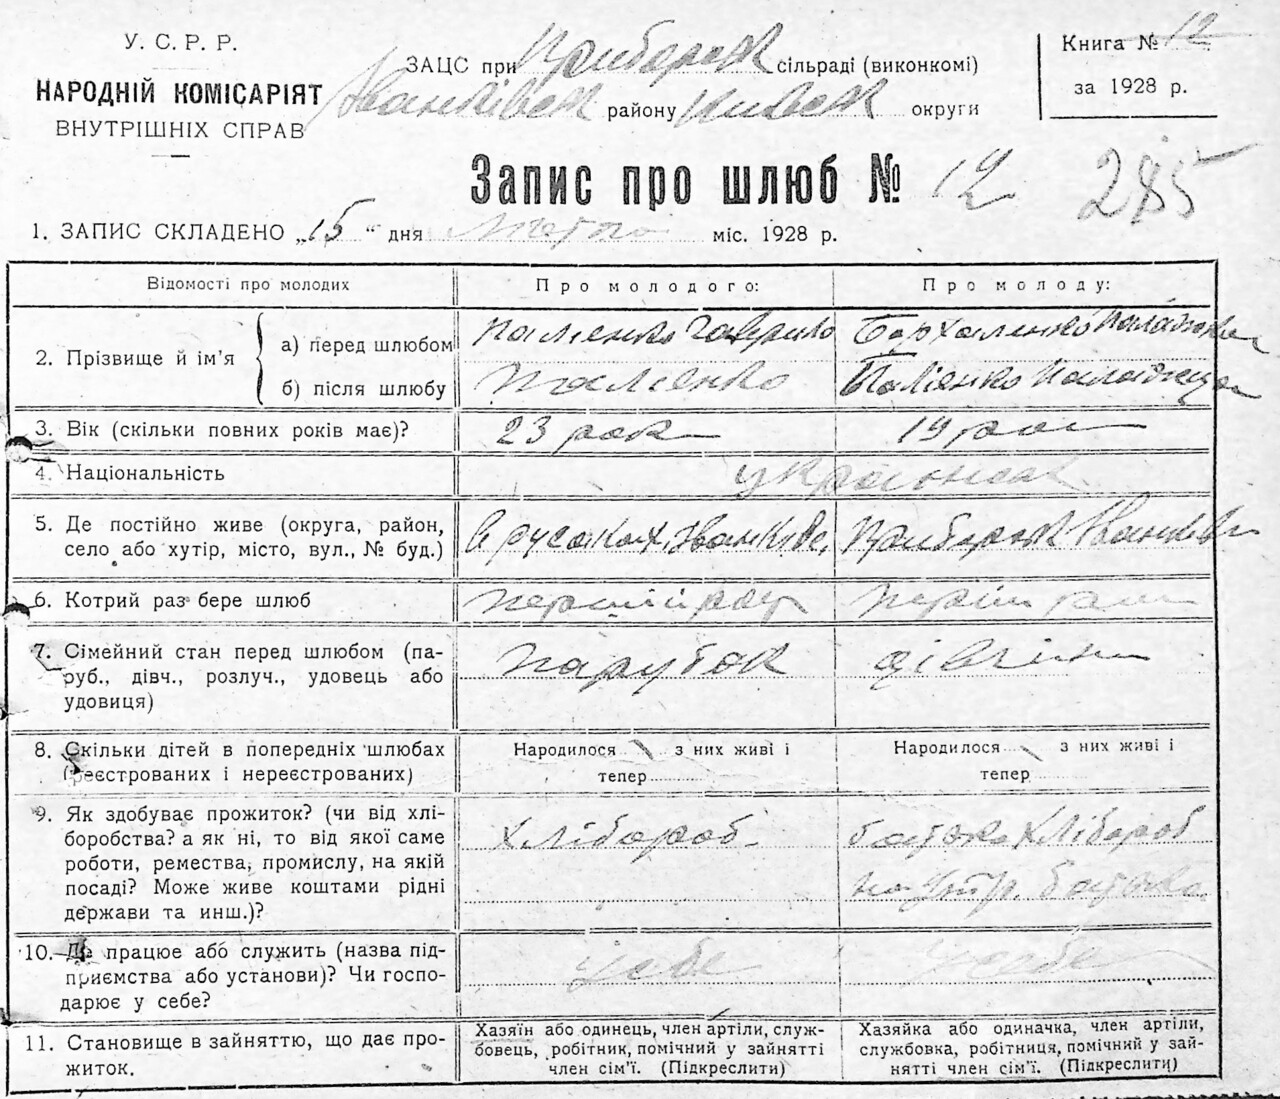 У. С. Р. Р.
НАРОДНІЙ КОМІСАРІЯТ
ВНУТРІШНІХ СПРАВ
ЗАЦС при Приборськ сільраді (виконкомі)
Іванківськ району Київськ округи
Книга № 12
за 1928 р.
Запис про шлюб № 12
285
1. ЗАПИС СКЛАДЕНО „15“ дня лютого міс. 1928 р.
Відомості про молодих
Про молодого:
Про молоду:
2. Прізвище й ім'я
а) перед шлюбом
Палієнко Гаврило
б) після шлюбу
Палієнко
Палієнко
3. Вік (скільки повних років має)?
23 рок
19 рок
4. Національність
українськ
5. Де постійно живе (округа, район,
село або хутір, місто, вул., № буд.)
с Русаках, Іванківс.
Приборськ Іванківс
6. Котрий раз бере шлюб
перший раз
перший раз
7. Сімейний стан перед шлюбом (па-
руб., дівч., розлуч., удовець або
удовиця)
парубок
дівчина
8. Скільки дітей в попередніх шлюбах
(реєстрованих і нереєстрованих)
Народилося з них живі і
тепер
Народилося з них живі і
тепер
9. Як здобуває прожиток? (чи від хлі-
боробства? а як ні, то від якої саме
роботи, ремества, промислу, на якій
посаді? Може живе коштами рідні
держави та инш.)?
хлібороб.
батько хлібороб
на утр. батька
10. Де працює або служить (назва під-
приємства або установи)? Чи госпо-
дарює у себе?
У себе
У себе
11. Становище в зайняттю, що дає про-
житок.
Хазяїн або одинець, член артіли, служ-
бовець, робітник, помічний у зайнятті
член сім'ї. (Підкреслити)
Хазяйка або одиначка, член артіли,
службовка, робітниця, помічний у зай-
нятті член сім'ї. (Підкреслити)